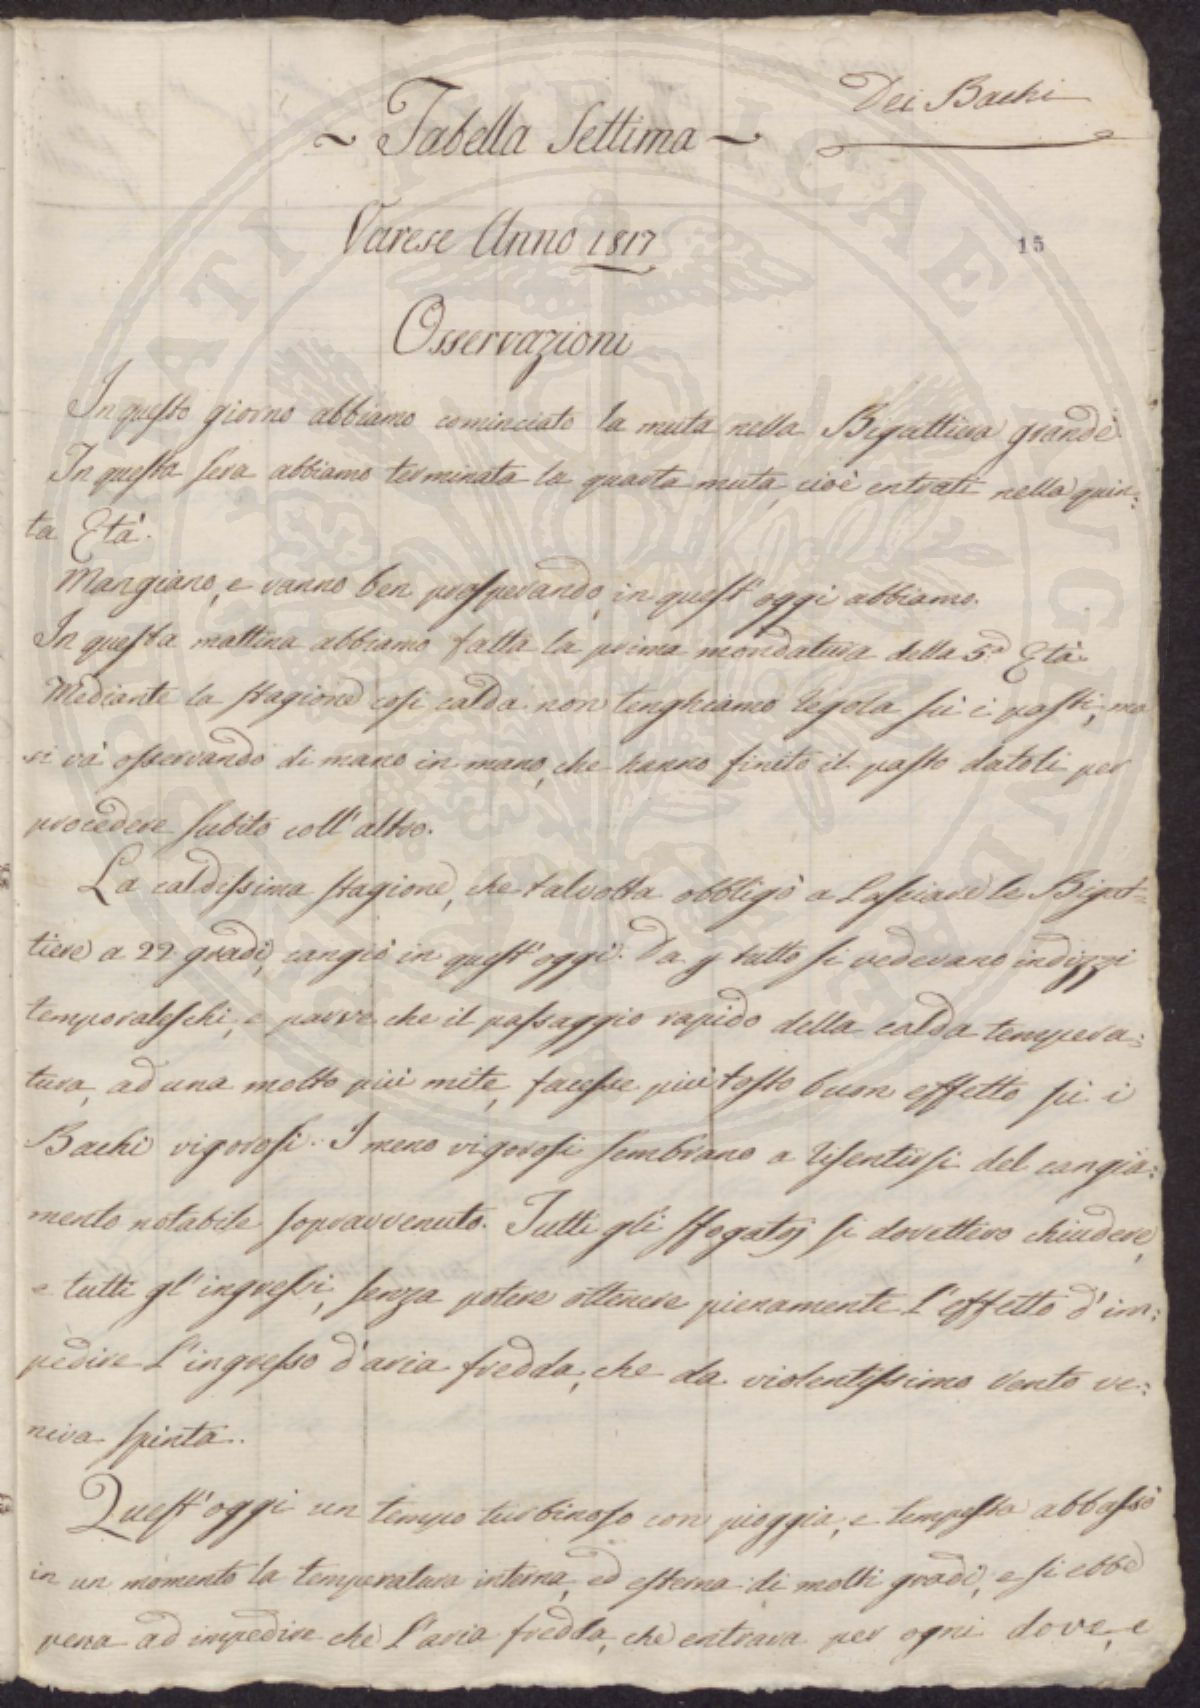 Dei Bachi
~ Tabella Settima ~
Varese Anno 1817
15
Osservazioni
In questo giorno abbiamo cominciato la muta nella Bigattiera grande
In questa sera abbiamo terminata la quarta muta, cioè entrati nella quin:
ta Età.
Mangiano, e vanno ben prosperando, in quest'oggi abbiamo.
In questa mattina abbiamo fatta la prima mondatura della 5.a Età.
Mediante la stagione così calda non tenghiamo regola sù i pasti, ma
si và osservando di mano in mano, che hanno finito il pasto datoli per
procedere subito coll'altro.
La caldissima stagione, che talvolta obbligò a lasciare le Bigat=
tiere a 22 gradi, cangiò in quest'oggi. Da p tutto si vedevano indizzi
temporaleschi, e parve che il passaggio rapido della calda tempera:
tura, ad una molto più mite, facesse più tosto buon effetto sù i
Bachi vigorosi. I meno vigorosi sembrano a risentirsi del cangia:
mento notabile sopravvenuto. Tutti gli sfogatoj si dovettero chiudere,
e tutti gl'ingressi, senza potere ottenere pienamente l'effetto d'im:
pedire l'ingresso d'aria fredda, che da violentissimo vento ve:
niva spinta.
Quest'oggi un tempo turbinoso con pioggia, e tempesta abbassò
in un momento la temperatura interna, ed esterna di molti gradi, e si ebbe
pena ad impedire che l'aria fredda, che entrava per ogni dove, e